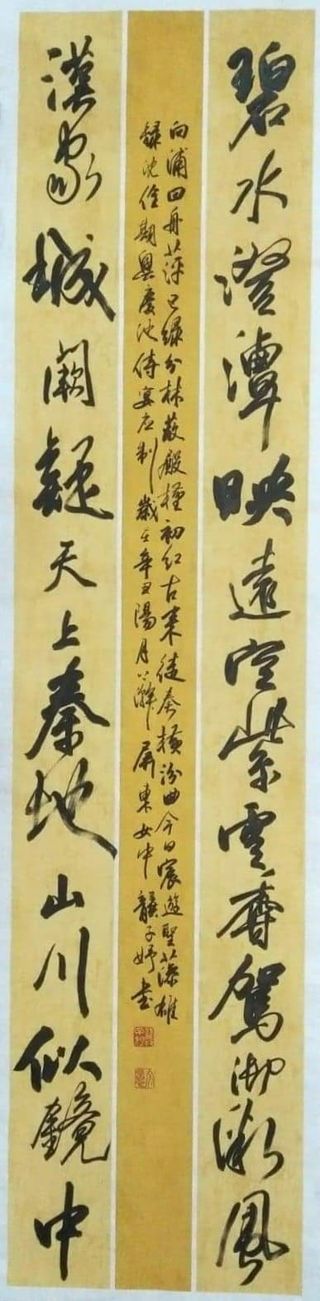 碧水澄潭映遠空紫雲香駕御微風
漢家城闕疑天上秦地山川似鏡中
向浦回舟萍已綠分林蔽殿槿初紅古來徒奏橫汾曲今日宸遊聖藻雄
錄沈佺期興慶池侍宴应制歲辛丑陽月屏東女中龔子妤書